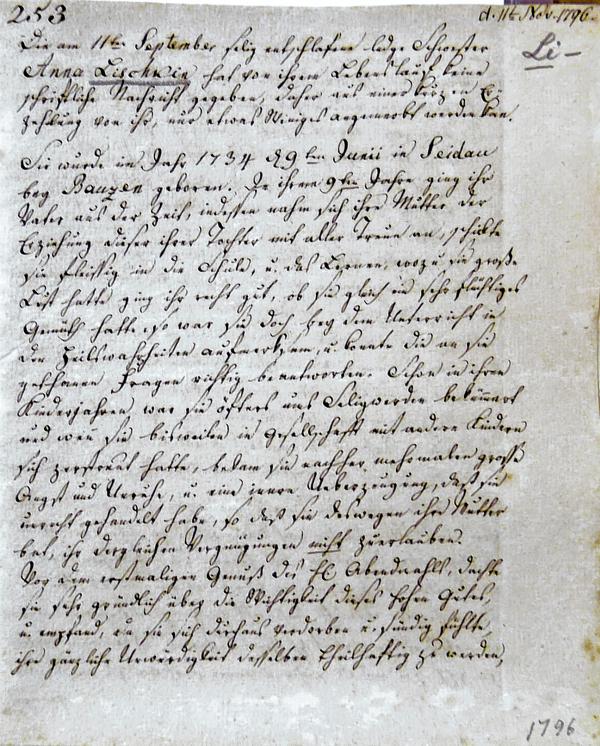 253
d. 11t. Nov. 1796.
Li-
Die am 11ten September selig entschlafene ledge Schwester
Anna Lischkein hat von ihrem Lebenslauf keine
schriftliche Nachricht gegeben, daher aus einer kurzen Er-
zehlung von ihr, nur etwas Weniges angemerkt werden kan.
Sie wurde im Jahr 1734 d 9ten Junii in Seidau
bey Bauzen geboren. In ihrem 9ten Jahre ging ihr
Vater aus der Zeit, indessen nahm sich ihre Mutter der
Erziehung dieser ihrer Tochter mit aller Treue an, schikte
sie fleissig in die Schule, u. das Lernen, wozu sie große
Lust hatte ging ihr recht gut, ob sie gleich ein sehr flüchtiges
Gemüth hatte, so war sie doch bey dem Unterricht in
den Heilswahrheiten aufmerksam, u. konnte die an sie
gethanen Fragen richtig beantworten. Schon in ihren
Kinderjahren, war sie öfters ums Seligwerden bekümert
und wen sie bisweilen in Gesellschaft mit andern Kindern
sich zerstreut hatte, bekam sie nachher mehrmalen grosse
Angst und Unruhe, u. eine innre Ueberzeugung, daß sie
unrecht gehandelt habe, so daß sie deswegen ihre Mutter
bat, ihr dergleichen Vergnügungen nicht zu erlauben.
Vor dem erstmaligen Genuß des Hl. Abendmahls, dachte
sie sehr gründlich über die Wichtigkeit dieses hohen Gutes,
u. empfand, da sie sich durchaus verdorben u. sündig fühlte,
ihre gänzliche Unwürdigkeit desselben theilhaftig zu werden,
1796